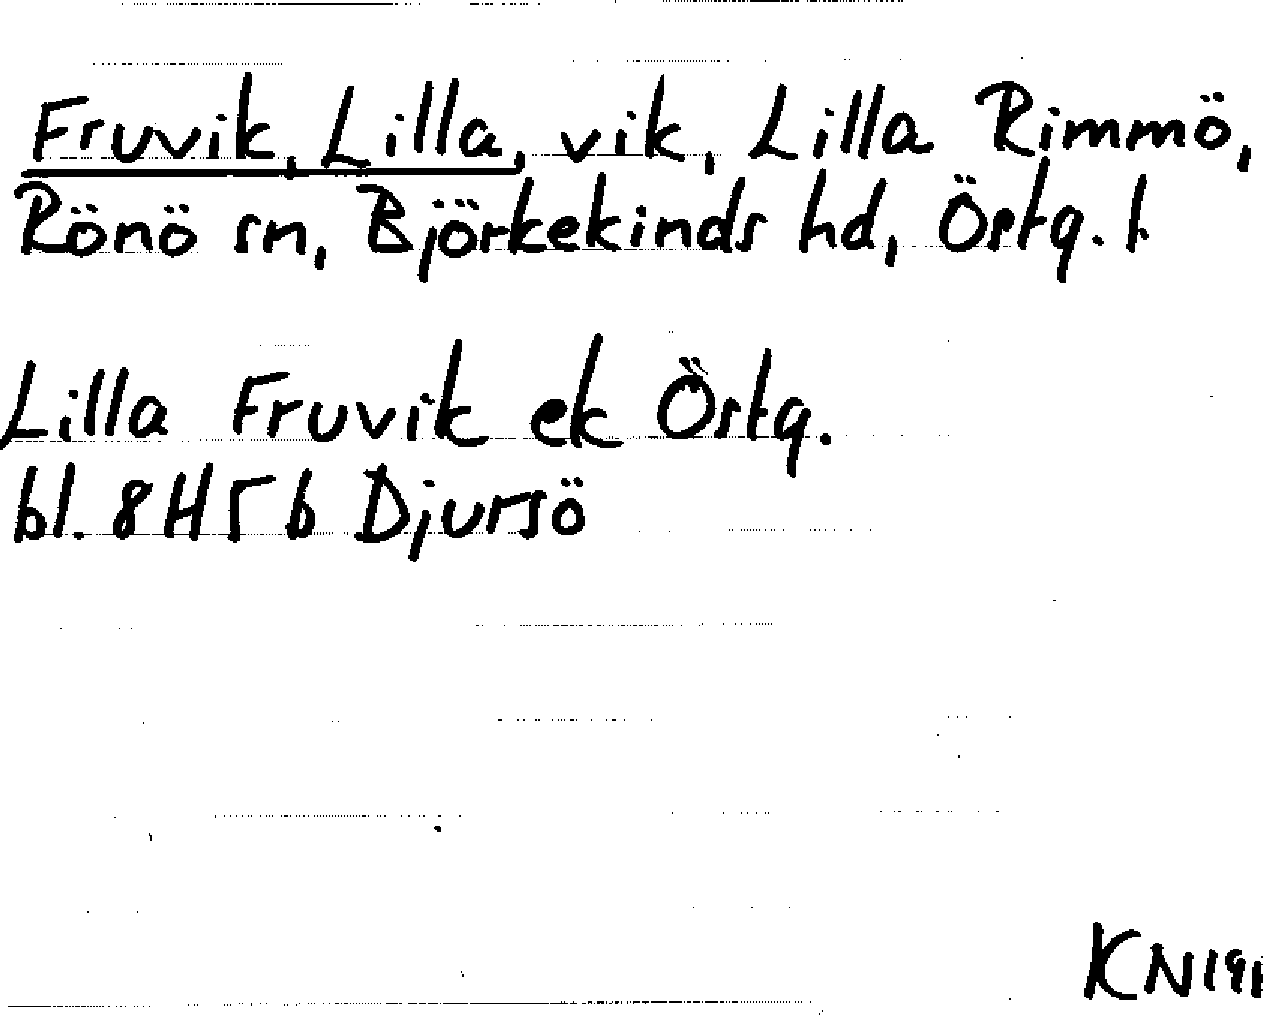 Fruvik, Lilla, vik, Lilla Rimmö,
Rönö sn, Björkekinds hd, Östg. l.
Lilla Fruvik ek Östg.
bl. 8H5b Djursö
KN191